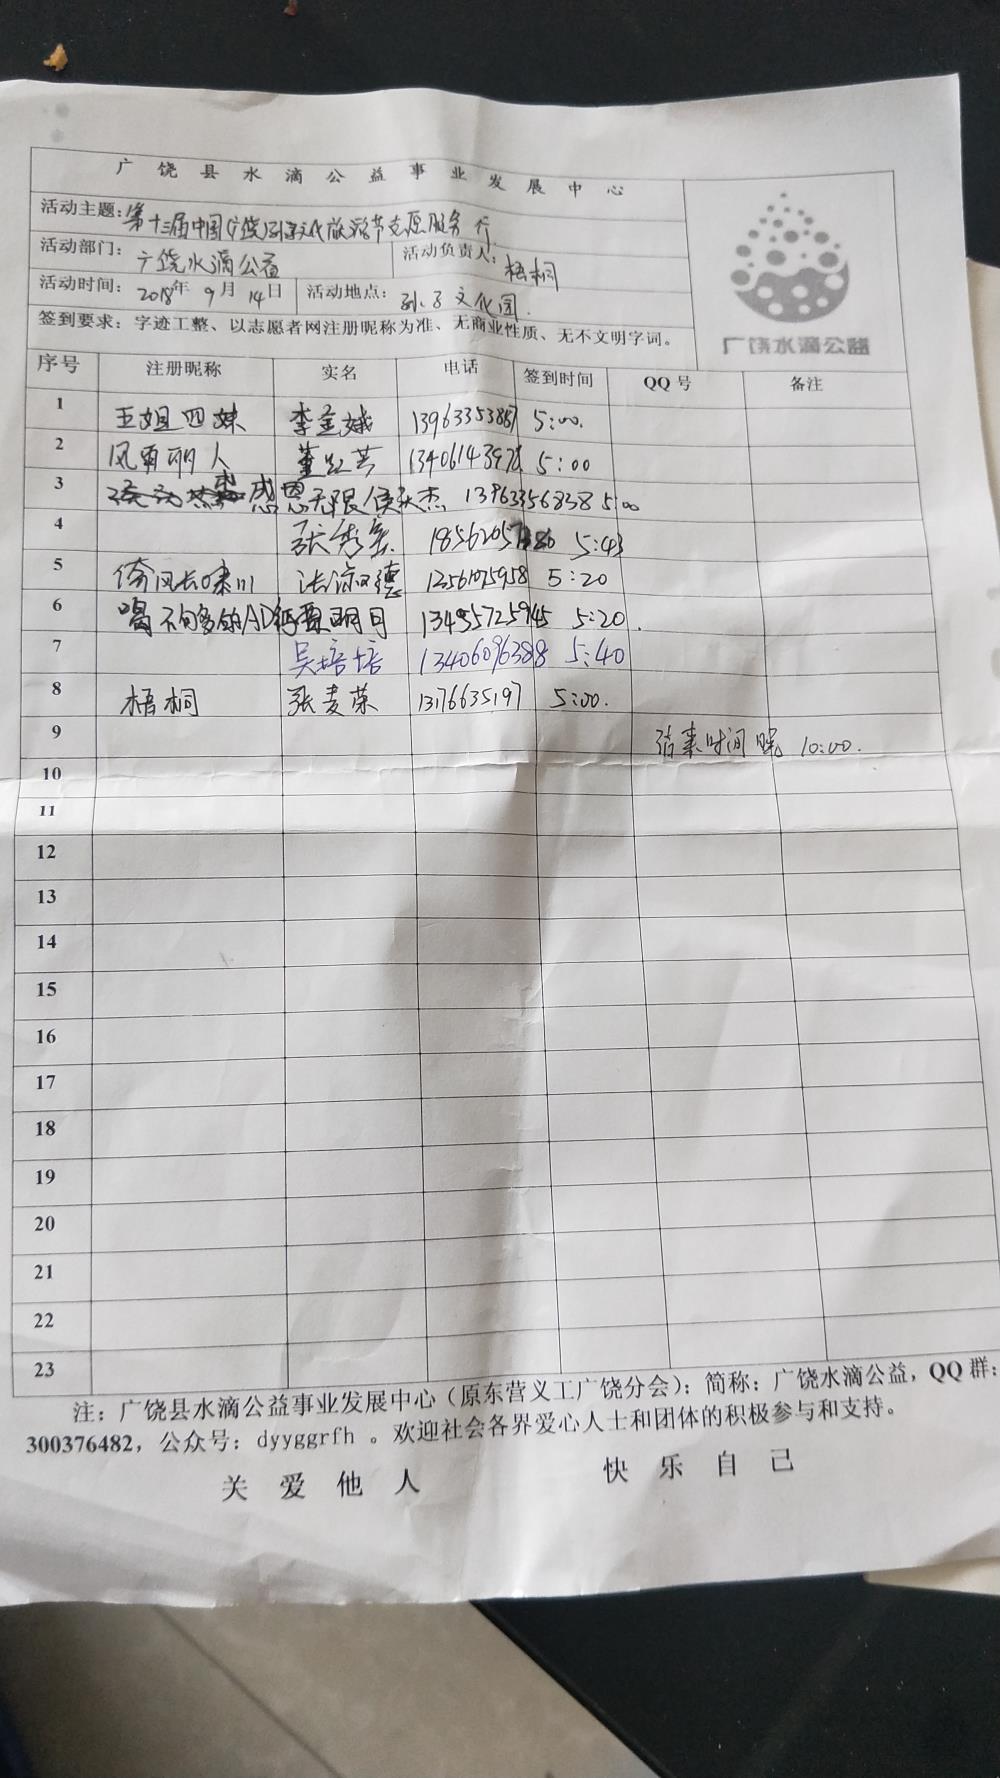 广饶县水滴公益事业发展中心
活动主题：第十三届中国(广饶)孙子文化旅游节志愿服务行
活动部门：广饶水滴公益 活动负责人：梧桐
活动时间：2018年9月14日 活动地点：孙子文化园
签到要求：字迹工整、以志愿者网注册昵称为准、无商业性质、无不文明字词。
广饶水滴公益
序号 注册昵称 实名 电话 签到时间 QQ号 备注
1 五姐四妹 李金娥 5:00.
2 风雨丽人 董红芸 5:00
3 感恩无限 侯秋杰 13963356838 5:00
4 张秀 5:43
5 倚风长啸川 5:20
6 喝不够的AD钙 明月 5:20.
7 吴培培 13406096388 5:40
8 梧桐 张麦荣 13176635197 5:00.
9 结束时间 晚 10:00.
10
11
12
13
14
15
16
17
18
19
20
21
22
23
注：广饶县水滴公益事业发展中心（原东营义工广饶分会）；简称：广饶水滴公益，QQ群：
300376482，公众号：dyyggrfh 。欢迎社会各界爱心人士和团体的积极参与和支持。
关爱他人 快乐自己